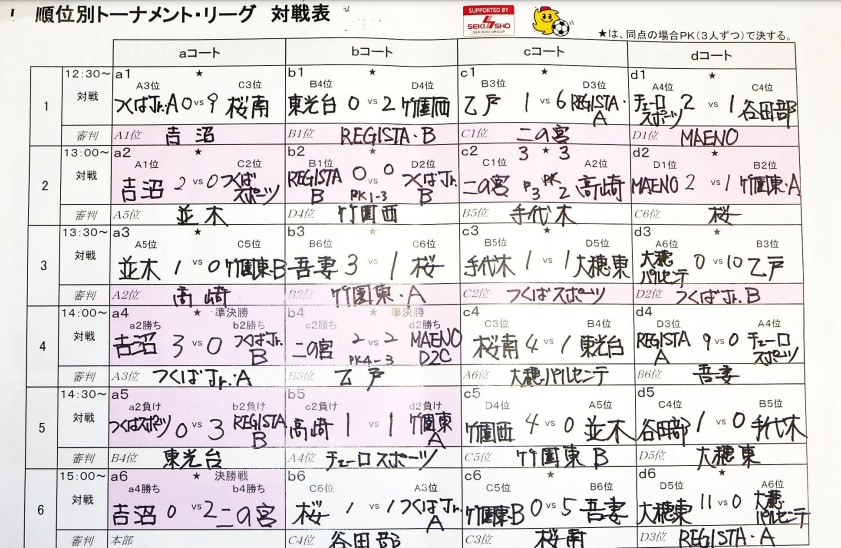 順位別トーナメント・リーグ 対戦表
SUPPORTED BY
SEKISHO
SEKISHO GROUP
★は、同点の場合PK(3人ずつ)で決する。
aコート bコート cコート dコート
1
12:30~
対戦
a1 ★
A3位 C3位
つくばJr.A 0 vs 9 桜南
b1 ★
B4位 D4位
東光台 0 vs 2 竹園西
c1 ★
B3位 D3位
乙戸 1 vs 6 REGISTA・A
d1 ★
A4位 C4位
チェーロスポーツ 2 vs 1 谷田部
審判 A1位 吉沼 B1位 REGISTA・B C1位 二の宮 D1位 MAENO
2
13:00~
対戦
a2 ★
A1位 C2位
吉沼 2 vs 0 つくばスポーツ
b2 ★
B1位 D2位
REGISTA B 0 vs 0 つくばJr.B
PK1-3
c2 3 ★ 3
C1位 A2位
二の宮 P3 vs PK2 高崎
d2 ★
D1位 B2位
MAENO 2 vs 1 竹園東・A
審判 A5位 並木 D4位 竹園西 B5位 手代木 C6位 桜
3
13:30~
対戦
a3 ★
A5位 C5位
並木 1 vs 0 竹園東・B
b3 ★
B6位 C6位
吾妻 3 vs 1 桜
c3 ★
B5位 D5位
手代木 1 vs 1 大穂東
d3 ★
A6位 B3位
大穂パルセンテ 0 vs 10 乙戸
審判 A2位 高崎 B2位 竹園東・A C2位 つくばスポーツ D2位 つくばJr.B
4
14:00~
対戦
a4 ★ 準決勝
a2勝ち b2勝ち
吉沼 3 vs 0 つくばJr.B
b4 ★ 準決勝
c2勝ち d2勝ち
二の宮 2 vs 2 MAENO D2C
PK4-3
c4
C3位 B4位
桜南 4 vs 1 東光台
d4
D3位 A4位
REGISTA A 9 vs 0 チェーロスポーツ
審判 A3位 つくばJr.A B3位 乙戸 A6位 大穂パルセンテ B6位 吾妻
5
14:30~
対戦
a5
a2負け b2負け
つくばスポーツ 0 vs 3 REGISTA B
b5
c2負け d2負け
高崎 1 vs 1 竹園東A
c5
D4位 A5位
竹園西 4 vs 0 並木
d5
C4位 B5位
谷田部 1 vs 0 手代木
審判 B4位 東光台 A4位 チェーロスポーツ C5位 竹園東B D5位 大穂東
6
15:00~
対戦
a6 ★ 決勝戦
a4勝ち b4勝ち
吉沼 0 vs 2 二の宮
b6
C6位 A3位
桜 1 vs 1 つくばJr.A
c6
C5位 B6位
竹園東B 0 vs 5 吾妻
d6
D5位 A6位
大穂東 11 vs 0 大穂パルセンテ
審判 本部 C4位 谷田部 C3位 桜南 D3位 REGISTA・A